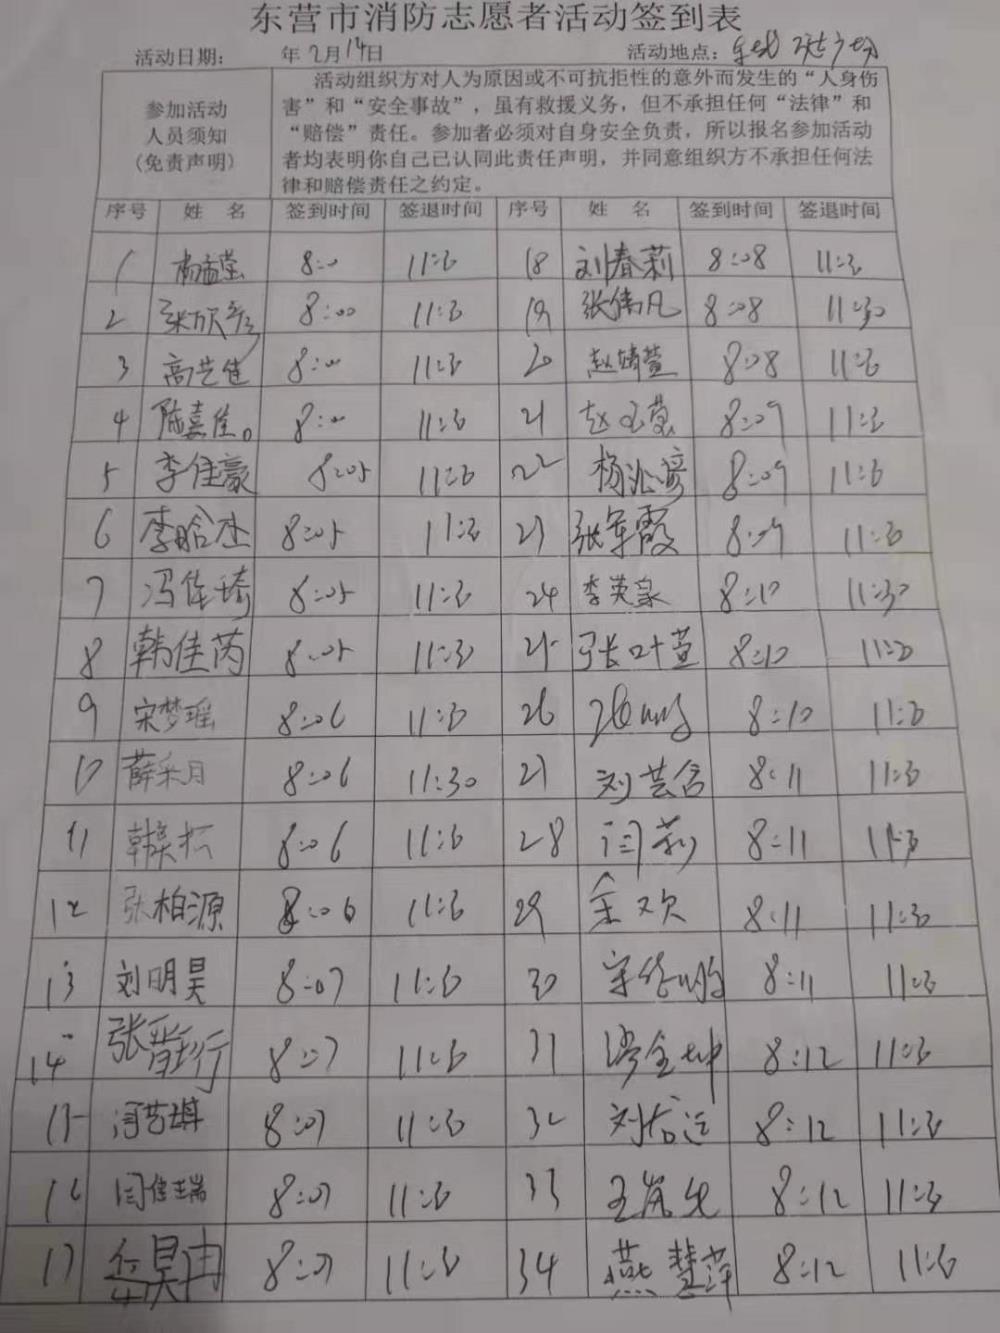 东营市消防志愿者活动签到表
活动日期： 年2月14日 活动地点：
参加活动
人员须知
(免责声明)
活动组织方对人为原因或不可抗拒性的意外而发生的“人身伤
害”和“安全事故”，虽有救援义务，但不承担任何“法律”和
“赔偿”责任。参加者必须对自身安全负责，所以报名参加活动
者均表明你自己已认同此责任声明，并同意组织方不承担任何法
律和赔偿责任之约定。
序号 姓 名 签到时间 签退时间 序号 姓 名 签到时间 签退时间
1 8:00 11:30 18 刘春莉 8:08 11:30
2 张欣 8:00 11:30 19 张伟凡 8:08 11:30
3 高艺佳 8:00 11:30 20 赵婧萱 8:08 11:30
4 陈嘉佳 8:00 11:30 21 赵玉莹 8:09 11:30
5 李佳豪 8:05 11:30 22 杨 8:09 11:30
6 李晗杰 8:05 11:30 23 张军霞 8:09 11:30
7 冯佳琦 8:05 11:30 24 李英豪 8:10 11:30
8 韩佳芮 8:05 11:30 25 张叶萱 8:10 11:30
9 宋梦瑶 8:06 11:30 26 8:10 11:30
10 薛采月 8:06 11:30 27 刘芸含 8:11 11:30
11 韩昊 8:06 11:30 28 闫莉 8:11 11:30
12 张柏源 8:06 11:30 29 余欢 8:11 11:30
13 刘明昊 8:07 11:30 30 宋 8:11 11:30
14 张 行 8:07 11:30 31 8:12 11:30
15 冯艺琪 8:07 11:30 32 刘 8:12 11:30
16 闫佳瑞 8:07 11:30 33 王 8:12 11:30
17 昊冉 8:07 11:30 34 燕慧萍 8:12 11:30